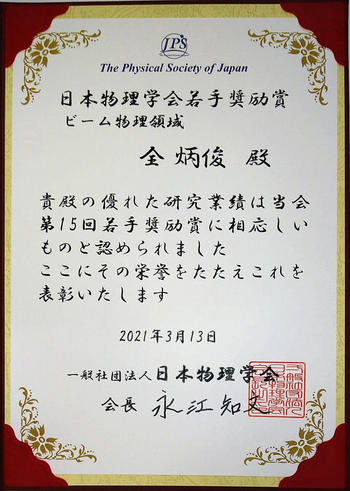 JPS
The Physical Society of Japan
日本物理学会若手奨励賞
ビーム物理領域
全 炳俊 殿
貴殿の優れた研究業績は当会
第15回若手奨励賞に相応しい
ものと認められました
ここにその栄誉をたたえこれを
表彰いたします
2021年3月13日
一般社団法人日本物理学会
会長 永江知文